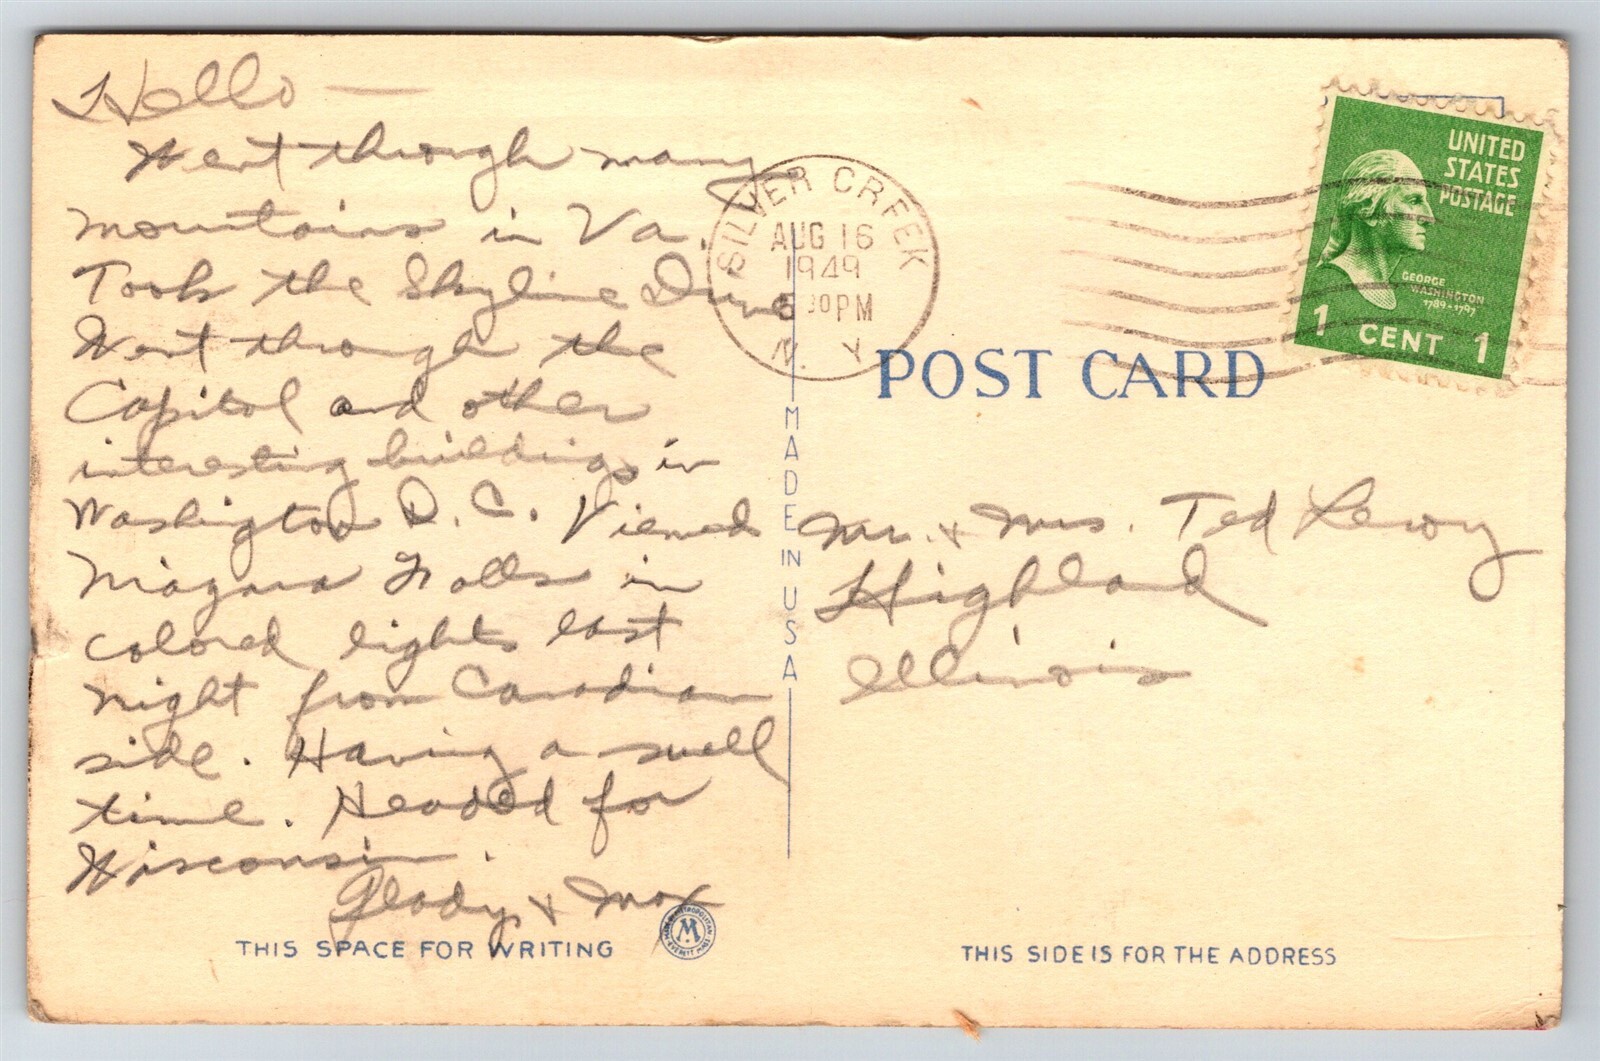 Hello —
Went through many
mountains in Va.
Took the Skyline Drive
Went through the
Capitol and other
interesting buildings in
Washington D. C. Viewed
Niagara Falls in
colored lights last
night from Canadian
side. Having a swell
time. Headed for
Wisconsin.
Gladys & Max
THIS SPACE FOR WRITING
SILVER CREEK
AUG 16
1949
30 PM
N. Y.
MADE IN USA
POST CARD
UNITED
STATES
POSTAGE
GEORGE
WASHINGTON
1789-1797
1 CENT 1
Mr. & Mrs. Ted
Highland
Illinois
THIS SIDE IS FOR THE ADDRESS
METROPOLITAN
M
EVERETT MASS